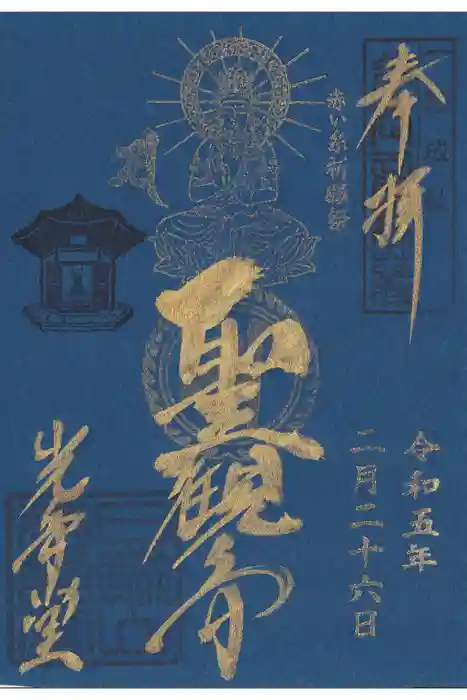 奉拝
赤い糸祈願祭
令和五年
二月二十六日
聖観音
光堂